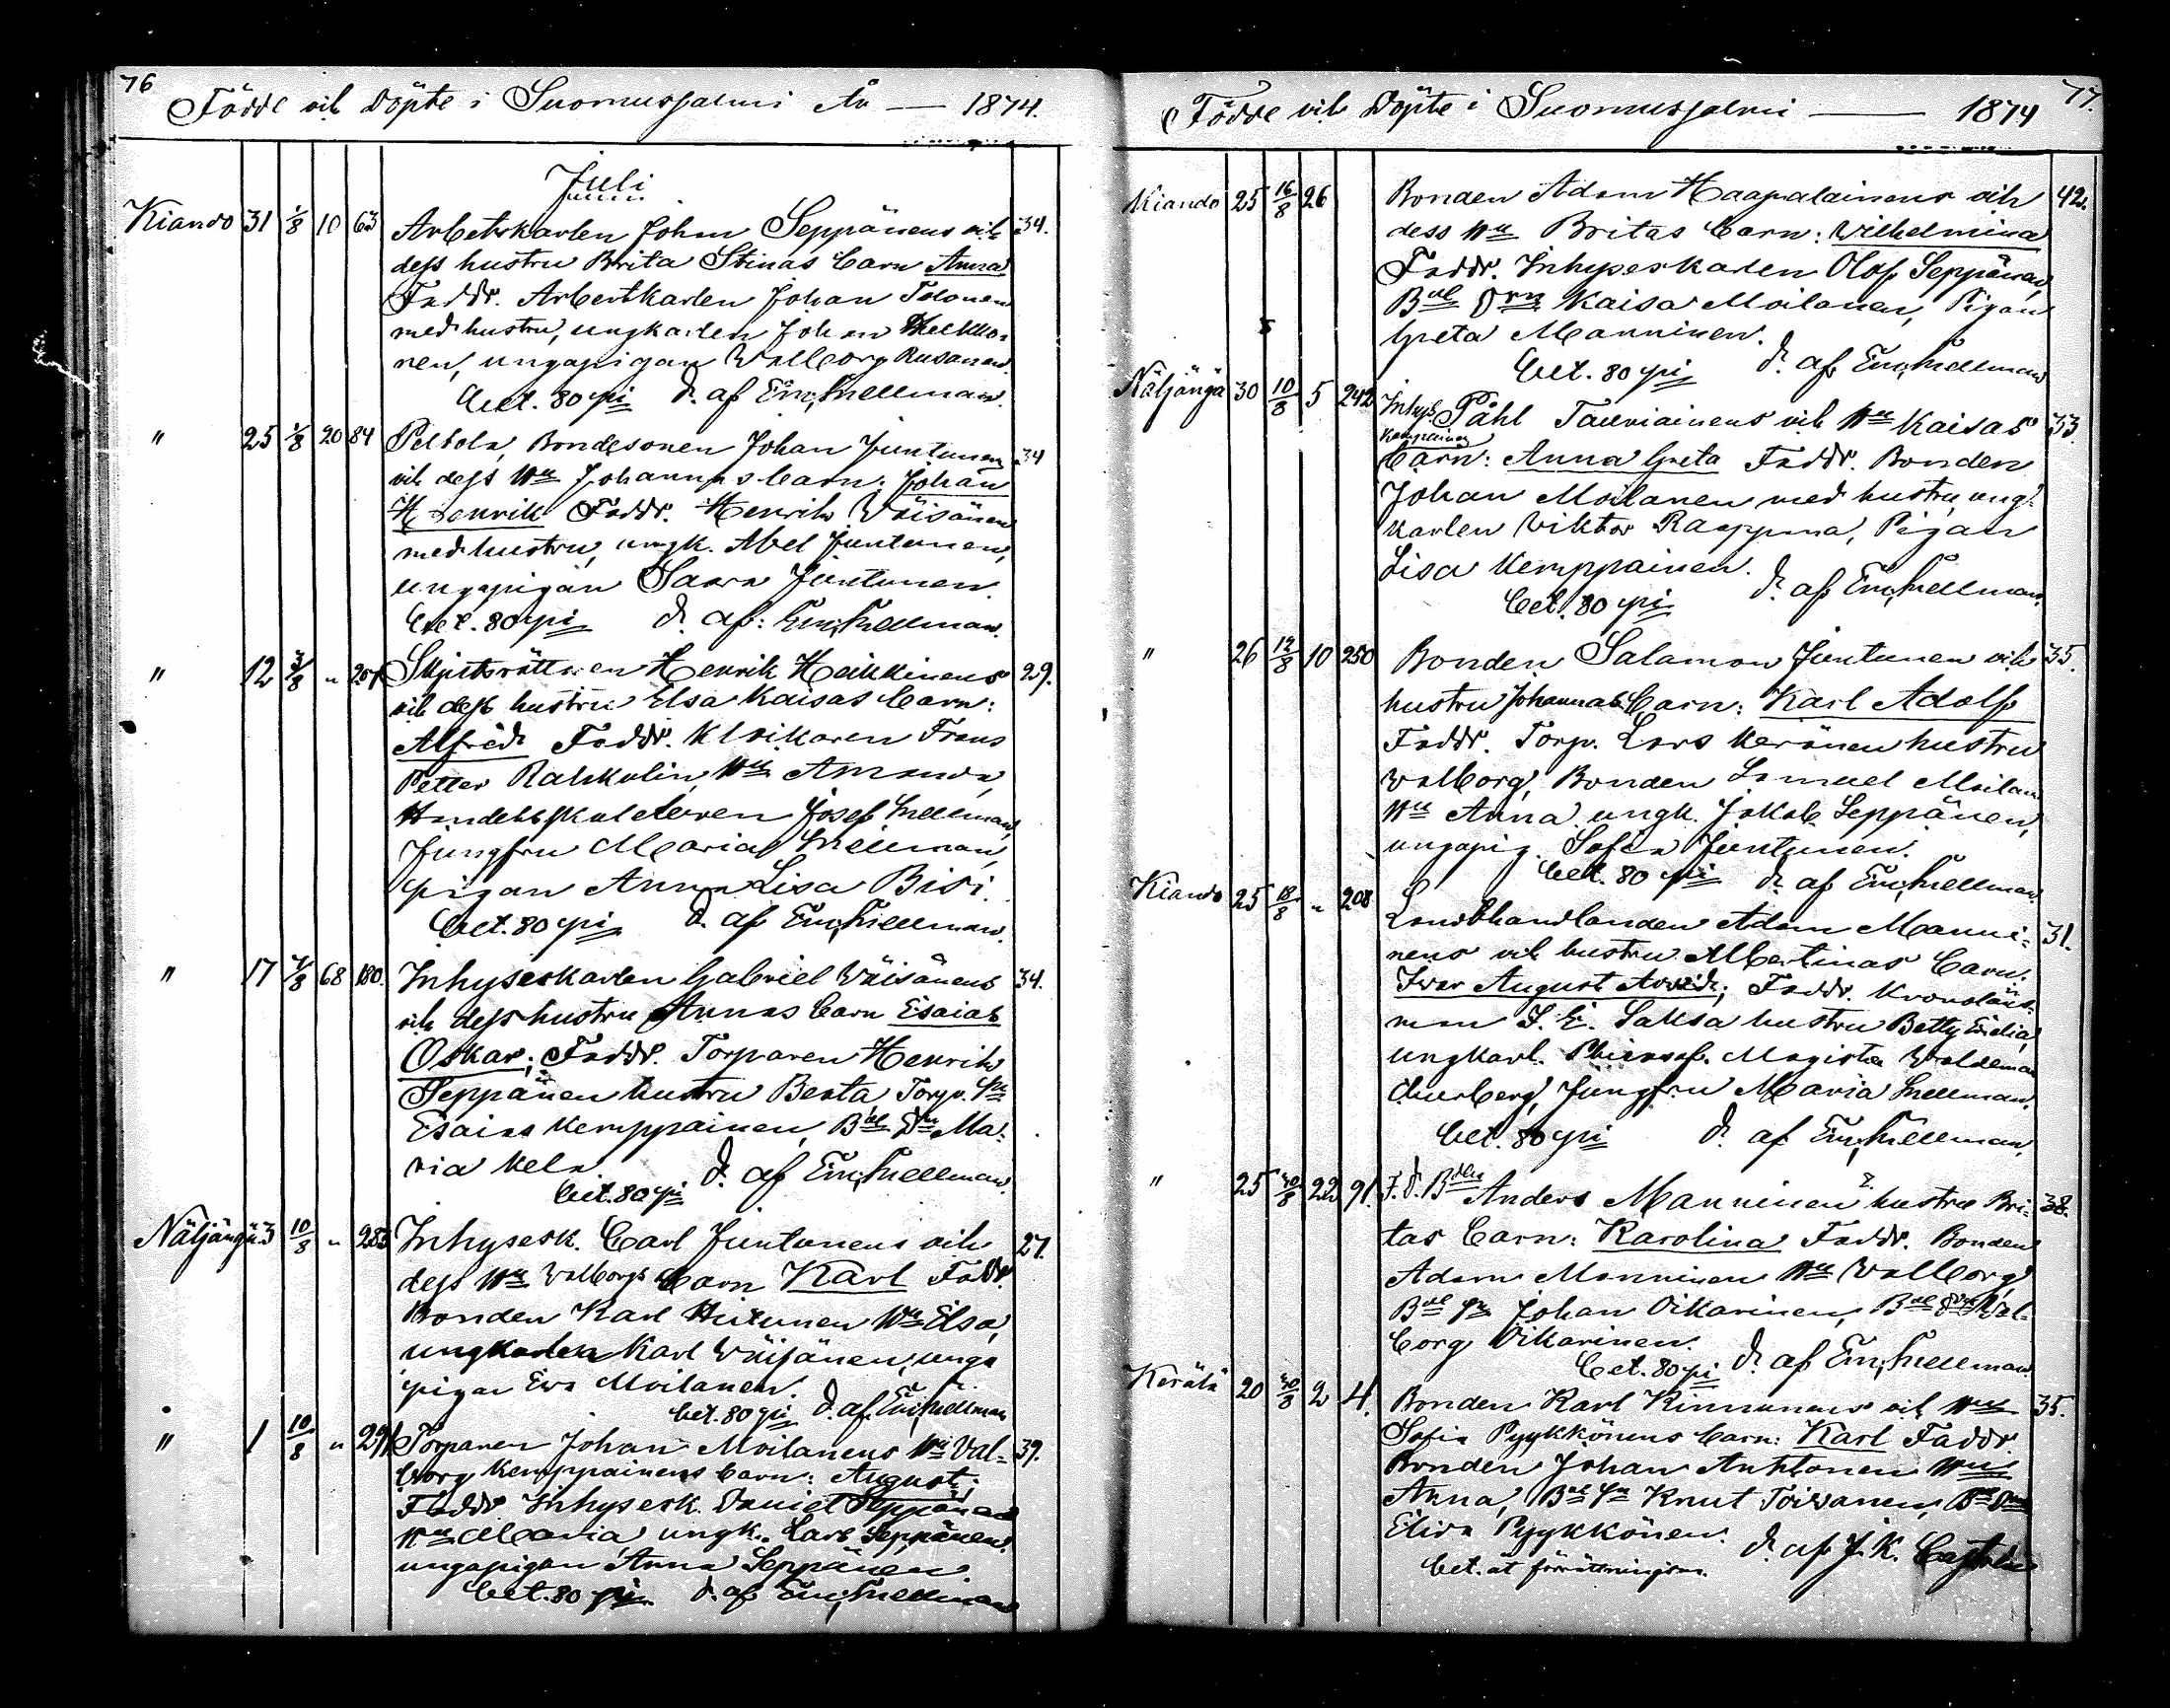 76
Födde och Döpte i Suomussalmi År — 1874.
Juli
Kiando 31 1/8 10 63 Arbetskarlen Johan Seppänens och 34.
dess hustru Brita Stinas barn Anna
Faddr. Arbetskarlen Johan Tolonen
med hustru, ungkarlen Johan
nen, ungapigan Walborg Rusanen
bet. 80 pi d. af Em. Snellman.
" 25 1/8 20 84 Peltola, Bondesonen Johan Juntunens 34
och dess Hu Johannas barn: Johan
Henrik Faddr. Henrik Wäisänen
med hustru, ungk. Abel Juntunen,
ungapigan Saara Juntunen.
bet. 80 pi d. af: Em. Snellman.
" 12 3/8 " 207 Skjutsrättaren Henrik Heikkinens 29.
och dess hustru Elsa Kaisas barn:
Alfred Faddr. Klockaren Frans
Petter Rahkolin, Hu Amanda,
Josef Snellman,
Jungfru Maria Snellman,
pigan Anna Lisa Bisi.
bet. 80 pi d. af Em. Snellman.
" 17 4/8 68 180. Inhyseskarlen Gabriel Wäisänens 34.
och dess hustru Annas barn Esaias
Oskar; Faddr. Torparen Henrik
Seppänen hustru Beata Torp. Sn
Esaias Kemppainen, Bde Dn Ma-
ria Kela.
bet. 80 pi d. af Em. Snellman.
Näljängä 3 10/8 " 283 Inhysesk. Carl Juntunens och 27.
dess Hu Walborgs barn Karl Faddr.
Bonden Karl Huttunen Hu Elsa,
ungkarlen Karl Wäisänen, unga
pigan Eva Moilanen.
bet. 80 pi d. af Em. Snellman
" 1 10/8 " 291 Torparen Johan Moilanens Hu Val- 39.
borg Kemppainens barn: August;
Faddr Inhysesk. Daniel Seppänen
Hu Maria, ungk. Lars Seppänen.
ungapigan Anna Seppänen.
bet. 80 pi. d. af Em. Snellman
77.
Födde och Döpte i Suomussalmi — 1874
Kiando 25 16/8 26 Bonden Adam Haapalainens och 42.
dess Hu Britas barn: Wilhelmina
Faddr. Inhyseskarlen Olof Seppänen,
Bde Drn Kaisa Moilanen, Pigan
Greta Manninen.
bet. 80 pi d. af Em. Snellman
Näljängä 30 10/8 5 242 Inhys. Påhl Tauriainens och Hu Kaisas 33.
Kemppainen
barn: Anna Greta Faddr. Bonden
Johan Moilanen med hustru, ung-
karlen Wiktor Raappana, Pigan
Lisa Kemppainen.
bet. 80 pi d. af Em. Snellman.
" 26 12/8 10 250 Bonden Salamon Juntunen och 35.
hustru Johannas barn: Karl Adolf
Faddr. Torp. Lars Keränen hustru
Walborg, Bonden Samuel Moilan
Hu Anna ungk. Jakob Seppänen,
ungapig. Sofia Juntunen.
bet. 80 pi d. af Em. Snellman
Kiando 25 18/8 " 208 Landthandlanden Adam Manni- 31.
nens och hustru Albertinas barn.
Ivar August Arvid; Faddr. Kronolän-
man J. E. Saksa hustru Betty Emelia,
ungkarl. Philosof. Magister Waldemar
Churberg, Jungfru Maria Snellman.
bet. 80 pi d. af Em. Snellman.
" 25 30/8 22 91. F. d. Bden Anders Manninen hustru Bri- 38.
tas barn: Karolina Faddr. Bonden
Adam Manninen Hu Walborg,
Bde Sn Johan Oikarinen, Bde Drn Wal-
borg Oikarinen.
bet. 80 pi d. af Em. Snellman.
Kerälä 20 30/8 2 4. Bonden Karl Kinnunens och Hu 35.
Sofia Pyykkönens barn: Karl Faddr.
Bonden Johan Anttonen Hu
Anna, Bde Sn Knut Toivanen, Bde Drn
Elida Pyykkönen.
bet. åt förrättningsm. d. af J. K. Castrén